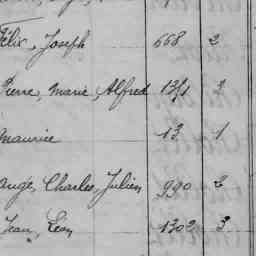 Félix, Joseph 668 2
Pierre, Marie, Alfred 1371 3
Maurice 13 1
Ange, Charles, Julien 990 2
Jean, Léon 1302 3